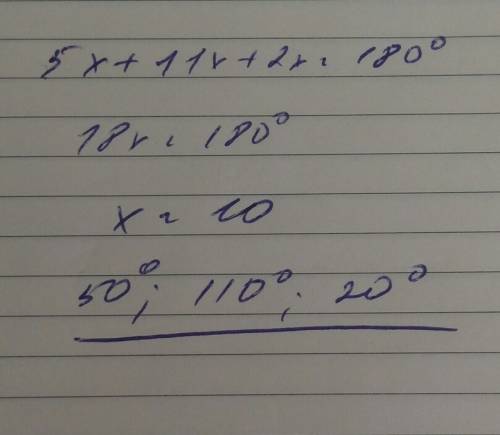 5x+11x+2x=180°
18x=180°
x=10
50°; 110°; 20°